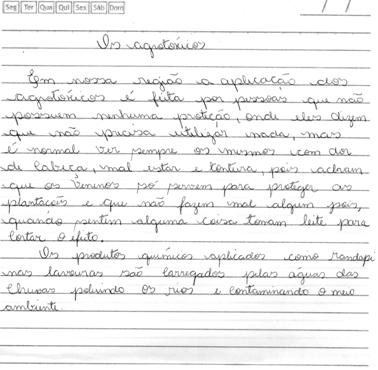 Seg Ter Qua Qui Sex Sáb Dom
Os agrotoxicos
Em nossa região a aplicação dos
agrotoxicos é feita por pessoas que não
possuem nenhuma proteção, onde eles dizem
que não precisa utilizar nada, mas
é normal ver sempre os mesmos com dor
de cabeça, mal estar e tontura, pois acham
que os venenos só servem para proteger as
plantacois e que não fazem mal algum pois,
quando sentem alguma coisa tomam leite para
cortar o efeito.
Os produtos químicos aplicados como Randape
nas lavouras são carregados pelas águas das
chuvas poluindo os rios e contaminando o meio
ambiente.